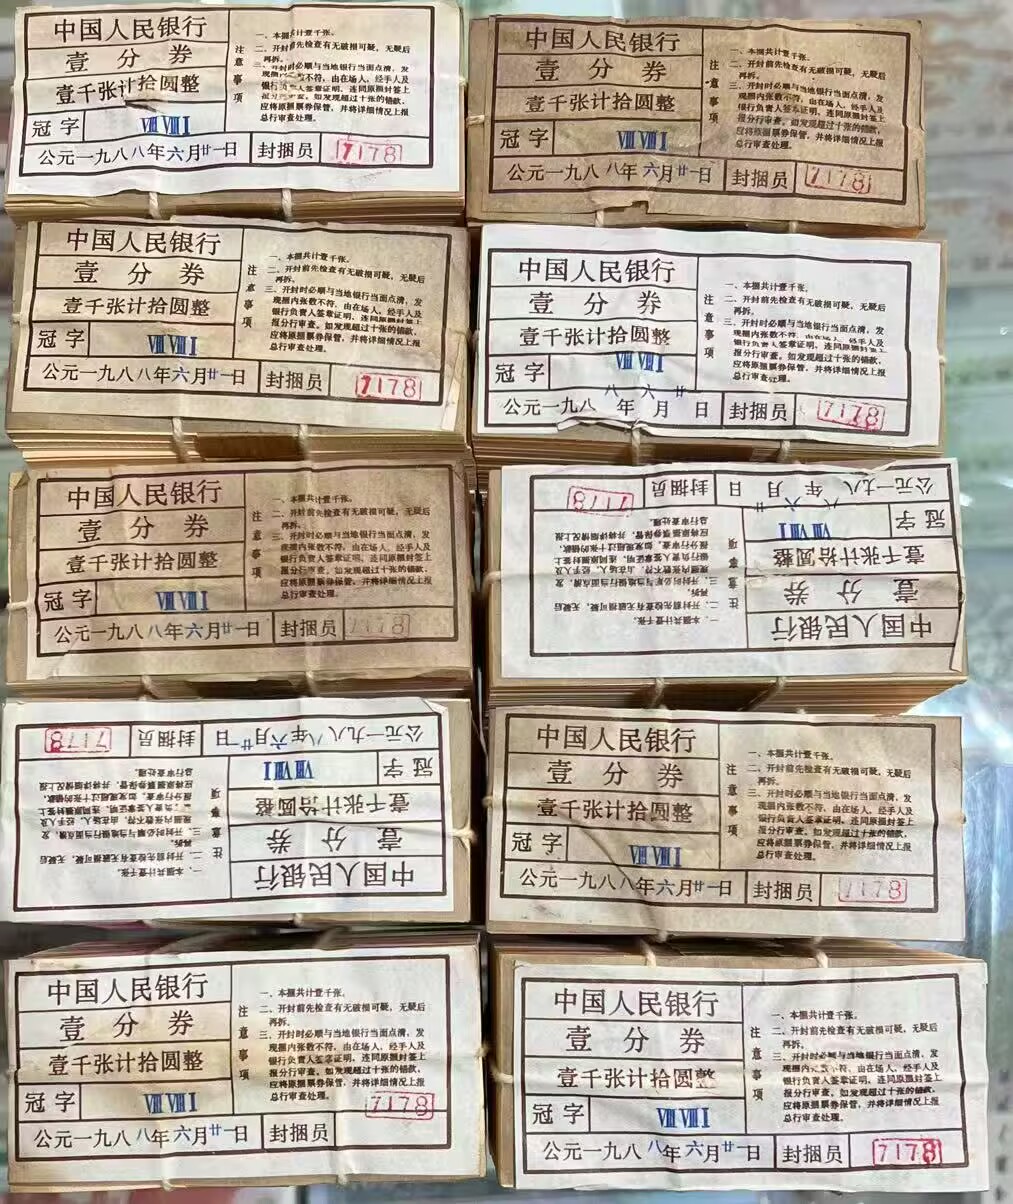 中国人民银行
壹分券
壹千张计拾圆整
冠字 ⅧⅧⅠ
注意事项
一、本捆共计壹千张。
二、开封前先检查有无破损可疑，无疑后
再拆。
三、开封时必顺与当地银行当面点清，发
现捆内张数不符，由在场人，经手人及
银行负责人签章证明，连同原捆封签上
报分行审查。如发现超过十张的错款，
应将原捆票券保管，并将详细情况上报
总行审查处理。
公元一九八八年六月廿一日 封捆员 7178
中国人民银行
壹分券
壹千张计拾圆整
冠字 ⅧⅧⅠ
注意事项
一、本捆共计壹千张。
二、开封前先检查有无破损可疑，无疑后
再拆。
三、开封时必顺与当地银行当面点清，发
现捆内张数不符，由在场人，经手人及
银行负责人签章证明，连同原捆封签上
报分行审查。如发现超过十张的错款，
应将原捆票券保管，并将详细情况上报
总行审查处理。
公元一九八八年六月廿一日 封捆员 7178
中国人民银行
壹分券
壹千张计拾圆整
冠字 ⅧⅧⅠ
注意事项
一、本捆共计壹千张。
二、开封前先检查有无破损可疑，无疑后
再拆。
三、开封时必顺与当地银行当面点清，发
现捆内张数不符，由在场人，经手人及
银行负责人签章证明，连同原捆封签上
报分行审查。如发现超过十张的错款，
应将原捆票券保管，并将详细情况上报
总行审查处理。
公元一九八八年六月廿一日 封捆员 7178
中国人民银行
壹分券
壹千张计拾圆整
冠字 ⅧⅧⅠ
注意事项
一、本捆共计壹千张。
二、开封前先检查有无破损可疑，无疑后
再拆。
三、开封时必顺与当地银行当面点清，发
现捆内张数不符，由在场人，经手人及
银行负责人签章证明，连同原捆封签上
报分行审查。如发现超过十张的错款，
应将原捆票券保管，并将详细情况上报
总行审查处理。
公元一九八八年六月廿日 封捆员 7178
中国人民银行
壹分券
壹千张计拾圆整
冠字 ⅧⅧⅠ
注意事项
一、本捆共计壹千张。
二、开封前先检查有无破损可疑，无疑后
再拆。
三、开封时必顺与当地银行当面点清，发
现捆内张数不符，由在场人，经手人及
银行负责人签章证明，连同原捆封签上
报分行审查。如发现超过十张的错款，
应将原捆票券保管，并将详细情况上报
总行审查处理。
公元一九八八年六月廿一日 封捆员 7178
中国人民银行
壹分券
壹千张计拾圆整
冠字 ⅧⅧⅠ
注意事项
一、本捆共计壹千张。
二、开封前先检查有无破损可疑，无疑后
再拆。
三、开封时必顺与当地银行当面点清，发
现捆内张数不符，由在场人，经手人及
银行负责人签章证明，连同原捆封签上
报分行审查。如发现超过十张的错款，
应将原捆票券保管，并将详细情况上报
总行审查处理。
公元一九八八年六月廿日 封捆员 7178
中国人民银行
壹分券
壹千张计拾圆整
冠字 ⅧⅧⅠ
注意事项
一、本捆共计壹千张。
二、开封前先检查有无破损可疑，无疑后
再拆。
三、开封时必顺与当地银行当面点清，发
现捆内张数不符，由在场人，经手人及
银行负责人签章证明，连同原捆封签上
报分行审查。如发现超过十张的错款，
应将原捆票券保管，并将详细情况上报
总行审查处理。
公元一九八八年六月廿一日 封捆员 7178
中国人民银行
壹分券
壹千张计拾圆整
冠字 ⅧⅧⅠ
注意事项
一、本捆共计壹千张。
二、开封前先检查有无破损可疑，无疑后
再拆。
三、开封时必顺与当地银行当面点清，发
现捆内张数不符，由在场人，经手人及
银行负责人签章证明，连同原捆封签上
报分行审查。如发现超过十张的错款，
应将原捆票券保管，并将详细情况上报
总行审查处理。
公元一九八八年六月廿一日 封捆员 7178
中国人民银行
壹分券
壹千张计拾圆整
冠字 ⅧⅧⅠ
注意事项
一、本捆共计壹千张。
二、开封前先检查有无破损可疑，无疑后
再拆。
三、开封时必顺与当地银行当面点清，发
现捆内张数不符，由在场人，经手人及
银行负责人签章证明，连同原捆封签上
报分行审查。如发现超过十张的错款，
应将原捆票券保管，并将详细情况上报
总行审查处理。
公元一九八八年六月廿一日 封捆员 7178
中国人民银行
壹分券
壹千张计拾圆整
冠字 ⅧⅧⅠ
注意事项
一、本捆共计壹千张。
二、开封前先检查有无破损可疑，无疑后
再拆。
三、开封时必顺与当地银行当面点清，发
现捆内张数不符，由在场人，经手人及
银行负责人签章证明，连同原捆封签上
报分行审查。如发现超过十张的错款，
应将原捆票券保管，并将详细情况上报
总行审查处理。
公元一九八八年六月廿一日 封捆员 7178